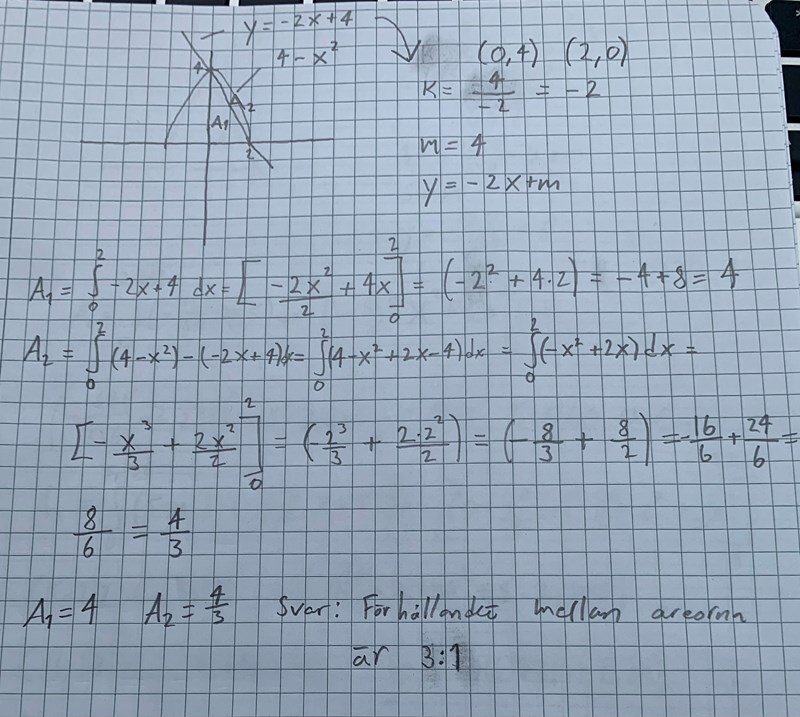 y = -2x+4
4 - x²
(0,4) (2,0)
4
A₂
A₁
2
K = 4/-2 = -2
m = 4
y = -2x+m
A₁ = ∫₀² -2x+4 dx = [-2x²/2 + 4x]₀² = (-2² + 4·2) = -4+8 = 4
A₂ = ∫₀² (4-x²) - (-2x+4)dx = ∫₀² (4-x²+2x-4)dx = ∫₀² (-x²+2x)dx =
[-x³/3 + 2x²/2]₀² = (-2³/3 + 2·2²/2) = (-8/3 + 8/2) = -16/6 + 24/6 =
8/6 = 4/3
A₁ = 4 A₂ = 4/3 Svar: Förhållandet mellan areorna
är 3:1